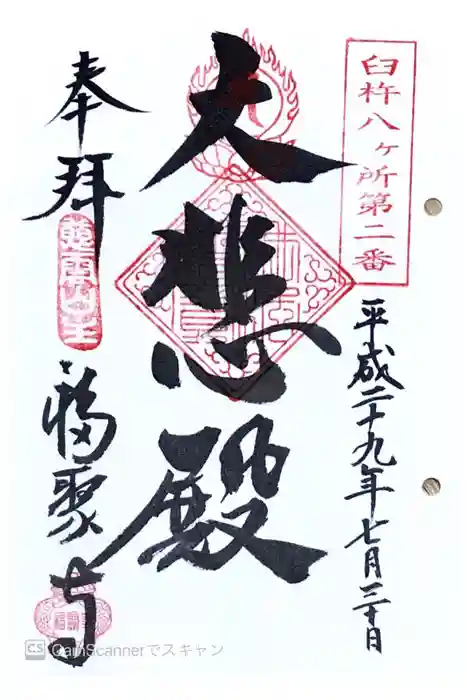 臼杵八ヶ所第二番
平成二十九年七月三十日
大悲殿
奉拝
福聚寺
CS CamScannerでスキャン